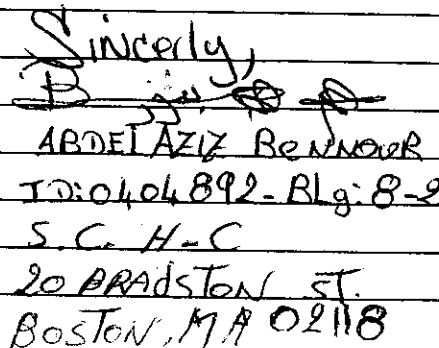 Sincerly,
ABDELAZIZ BENNOUR
ID:0404892-BLg:8-2
S.C. H-C
20 BRADSTON ST.
BOSTON, MA 02118